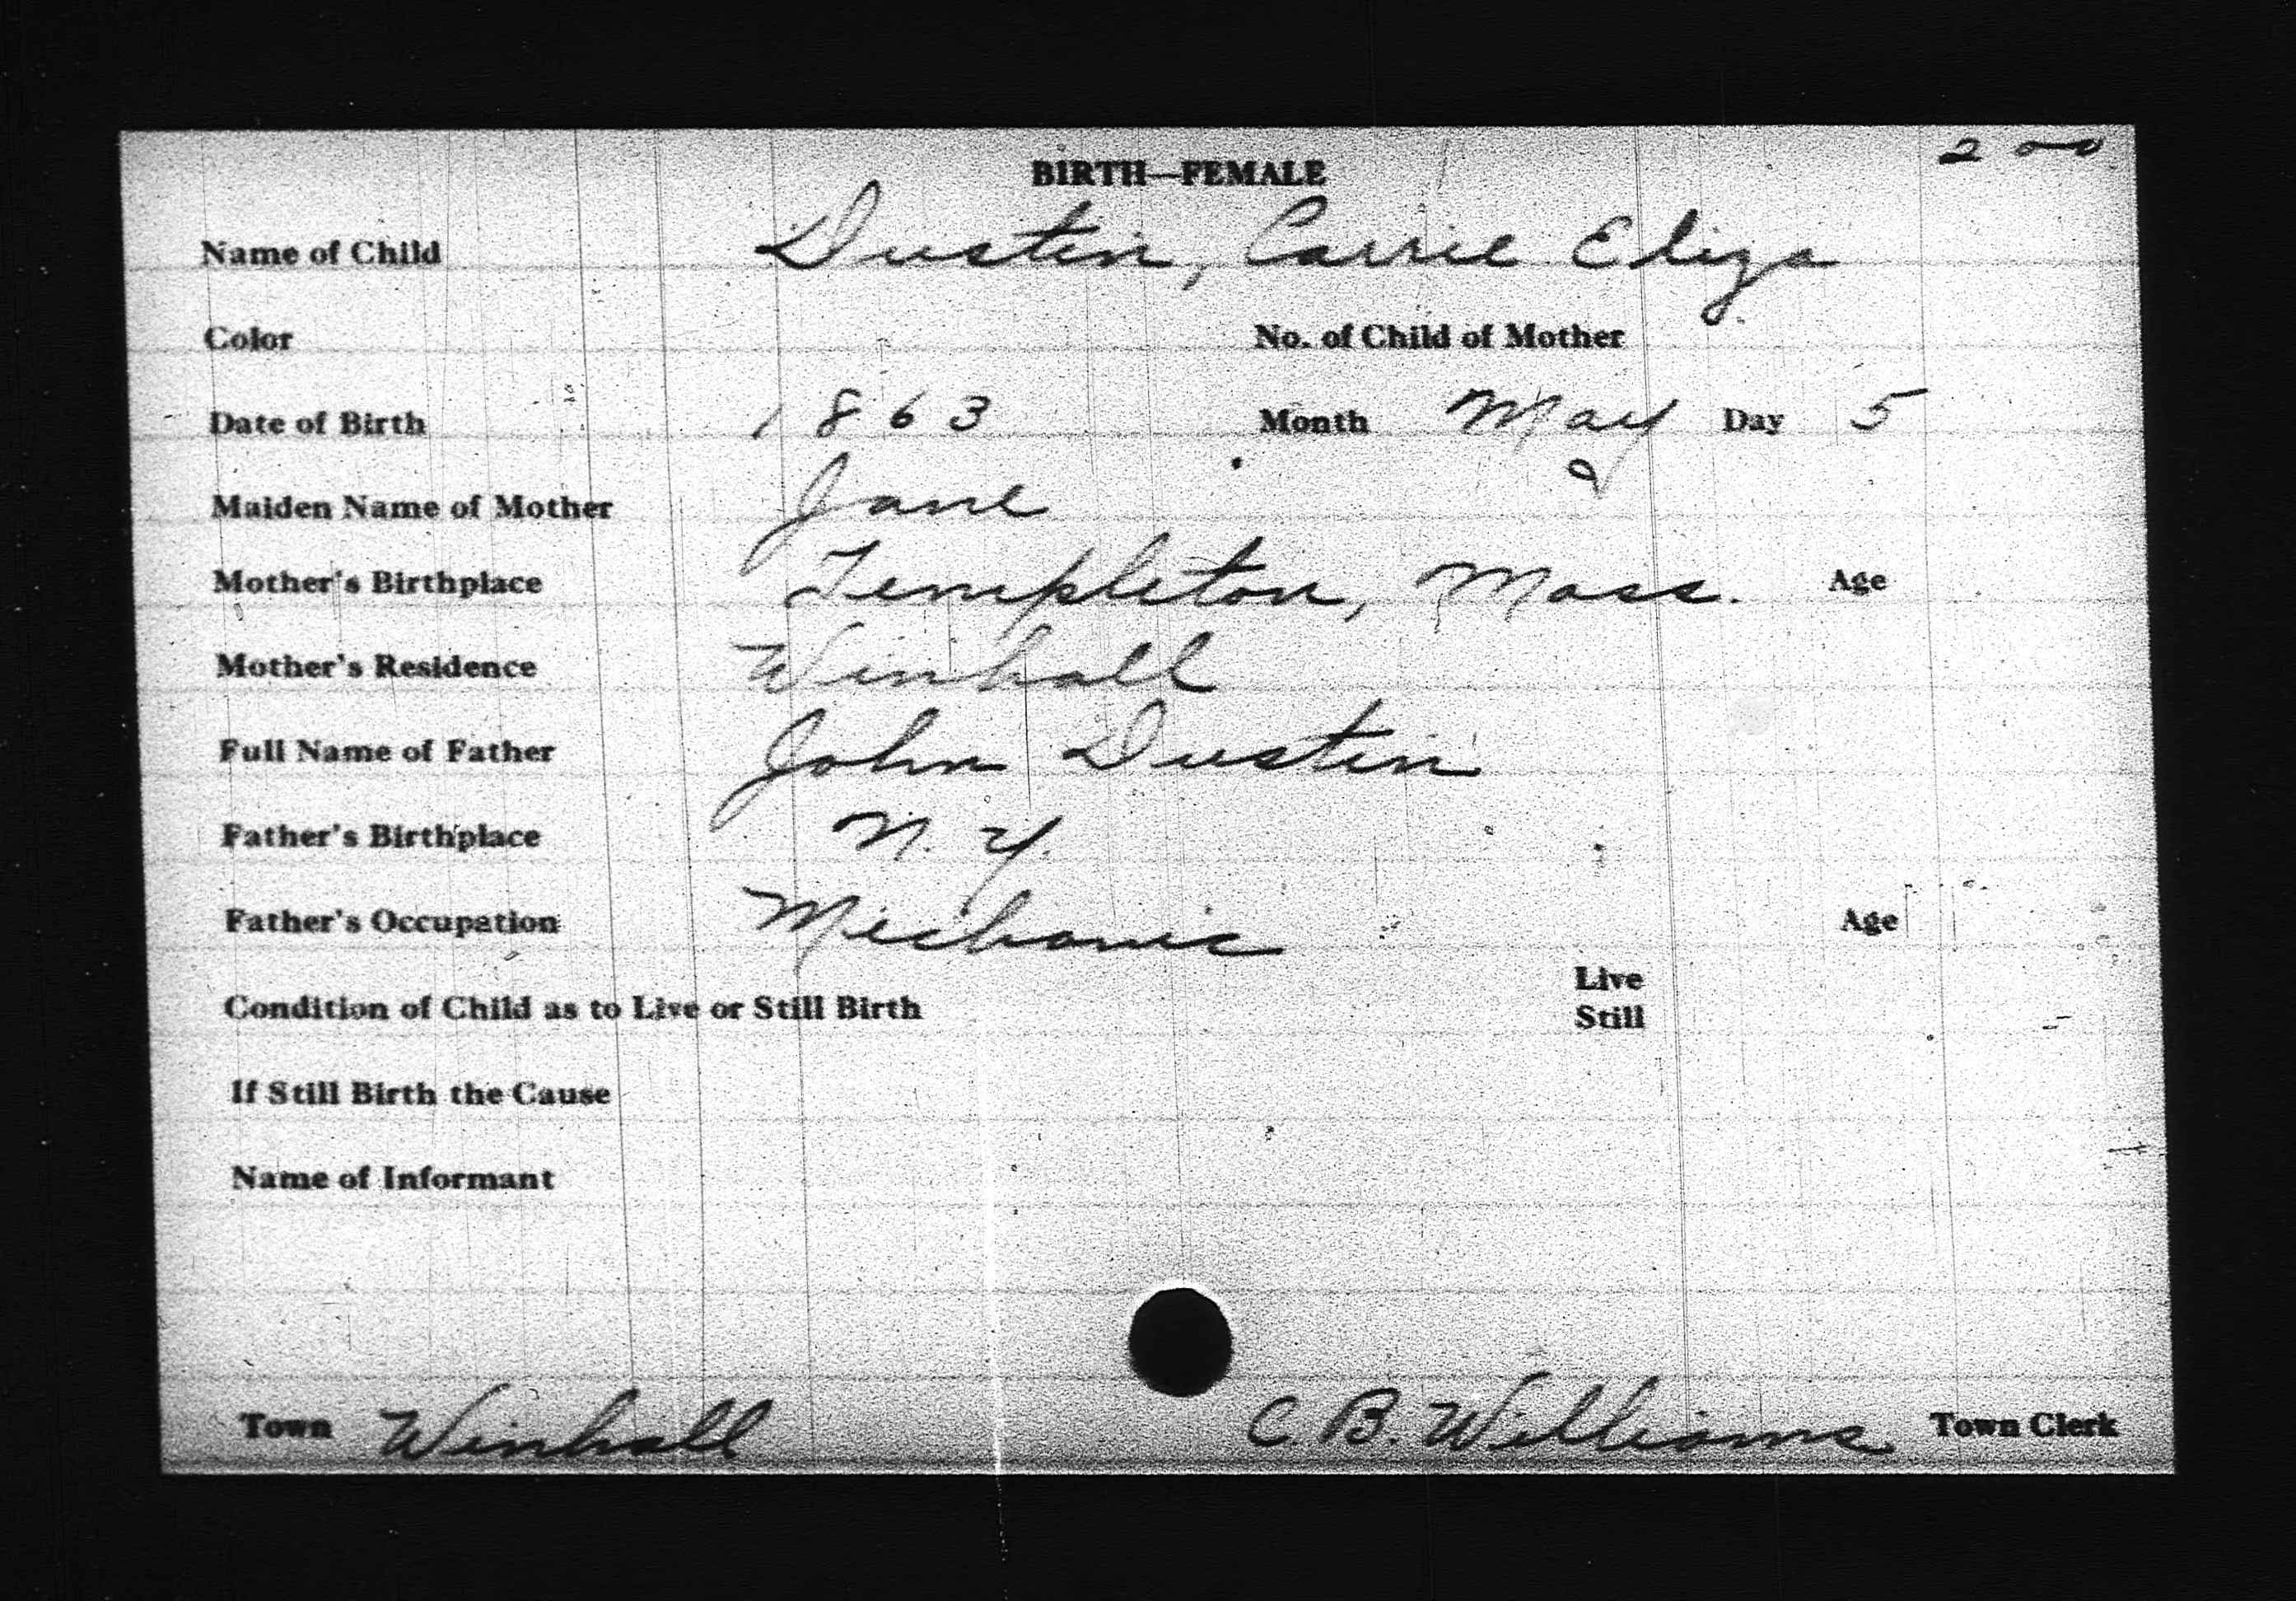 200
BIRTH—FEMALE
Name of Child Dustin, Carrie Eliza
Color No. of Child of Mother
Date of Birth 1863 Month May Day 5
Maiden Name of Mother Jane
Mother's Birthplace Templeton, Mass. Age
Mother's Residence Winhall
Full Name of Father John Dustin
Father's Birthplace N. Y.
Father's Occupation Mechanic Age
Live
Condition of Child as to Live or Still Birth
Still
If Still Birth the Cause
Name of Informant
Town Winhall C. B. Williams Town Clerk